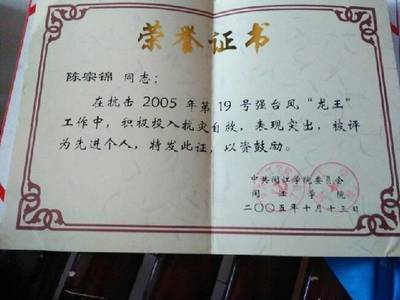 荣誉证书
陈宗锦 同志：
在抗击 2005 年第 19 号强台风“龙王”
工作中，积极投入抗灾自救，表现突出，被评
为先进个人，特发此证，以资鼓励。
中共闽江学院委员会
闽江学院
二〇〇五年十月十三日